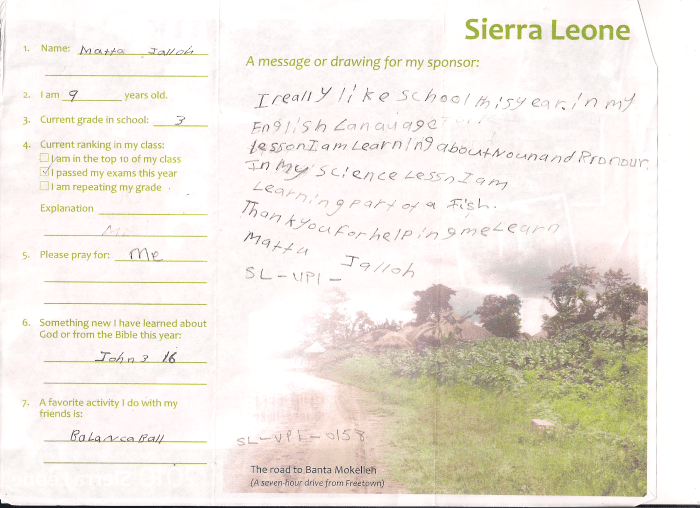 Sierra Leone
1. Name: Matta Jalloh
2. I am 9 years old.
3. Current grade in school: 3
4. Current ranking in my class:
I am in the top 10 of my class
I passed my exams this year
I am repeating my grade
Explanation
5. Please pray for: Me
6. Something new I have learned about
God or from the Bible this year:
John 3 16
7. A favorite activity I do with my
friends is:
BalancaBall
A message or drawing for my sponsor:
I really like school this year. in my
English Lanauage
lesson I am Learning about Noun and Pronoun
In My Science Lessn I am
Learning part of a Fish.
Thank you for helping me Learn
Mattu Jalloh
SL-UPI-
SL-UPI-0158
The road to Banta Mokelleh
(A seven-hour drive from Freetown)